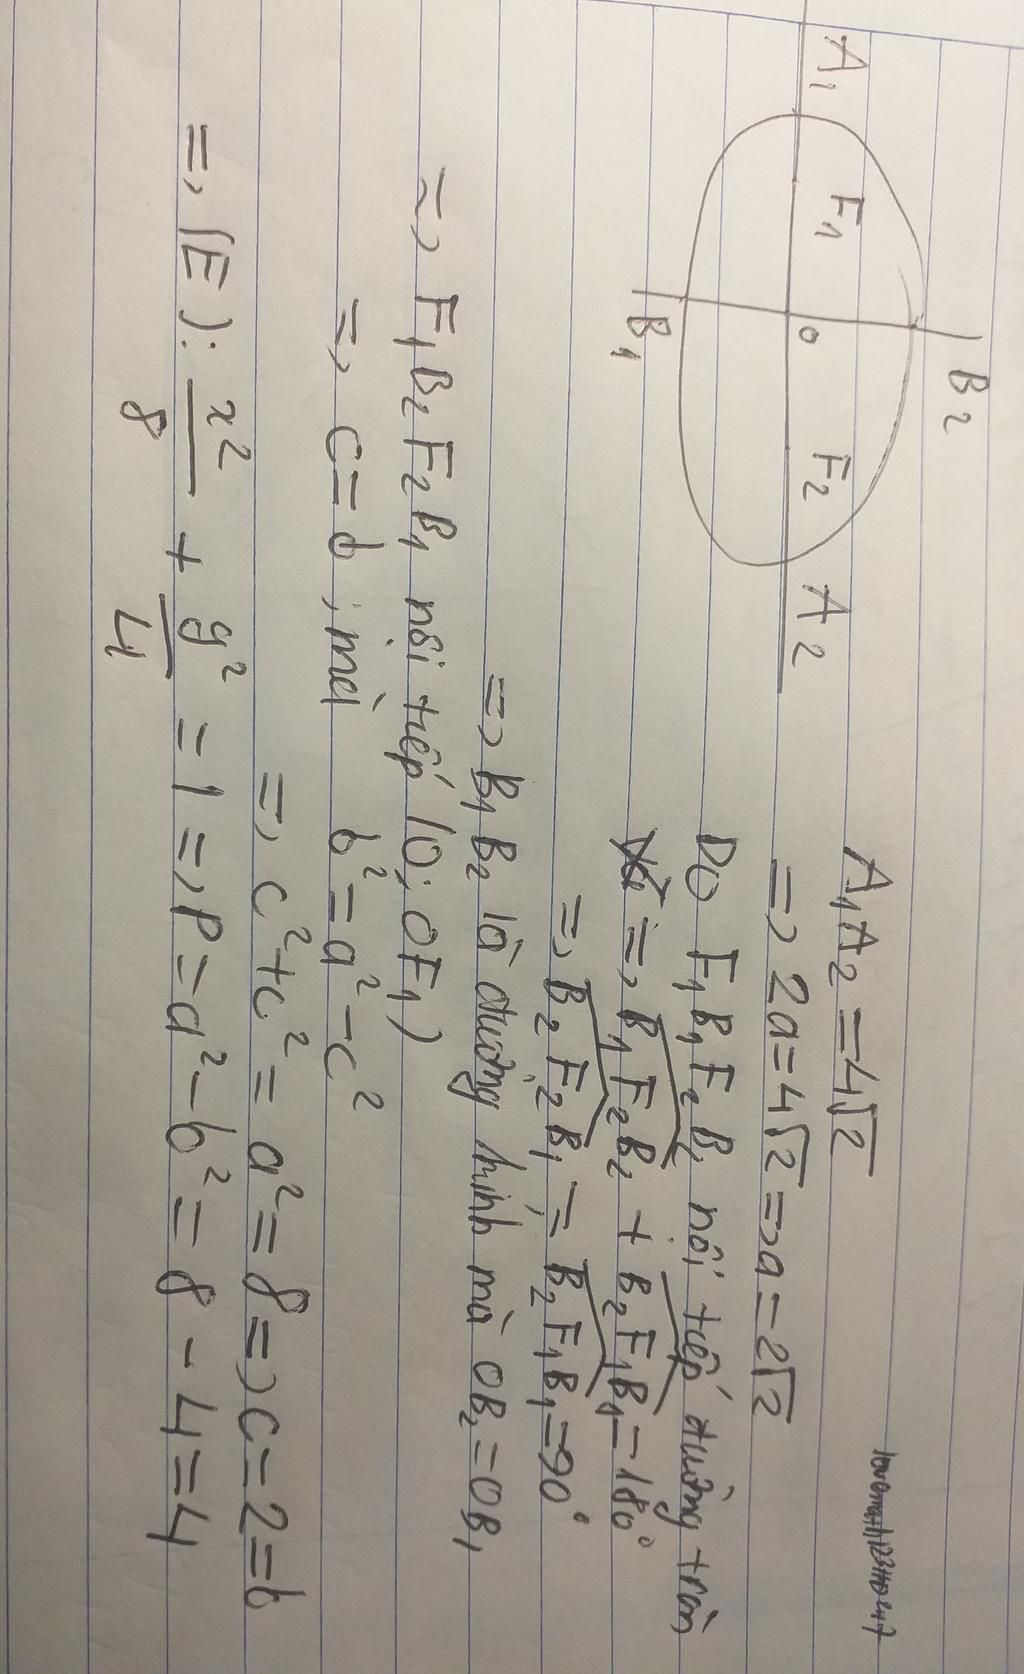 A₁ F₁ O F₂ A₂
B₂
B₁
A₁A₂ = 4√2
=> 2a = 4√2 => a = 2√2
Do F₁B₁F₂B₁ nội tiếp đường tròn
=> B₁F₂B₂ + B₂F₁B₁ = 180°
=> B₂F₂B₁ = B₂F₁B₁ = 90°
=> B₁B₂ là đường kính mà OB₂ = OB₁
=> F₁B₂F₂B₁ nội tiếp (O; OF₁)
=> c = b, mà b² = a² - c²
=> c² + c² = a² = 8 => c = 2 = b
=> (E): x²/8 + y²/4 = 1 => P = a² - b² = 8 - 4 = 4